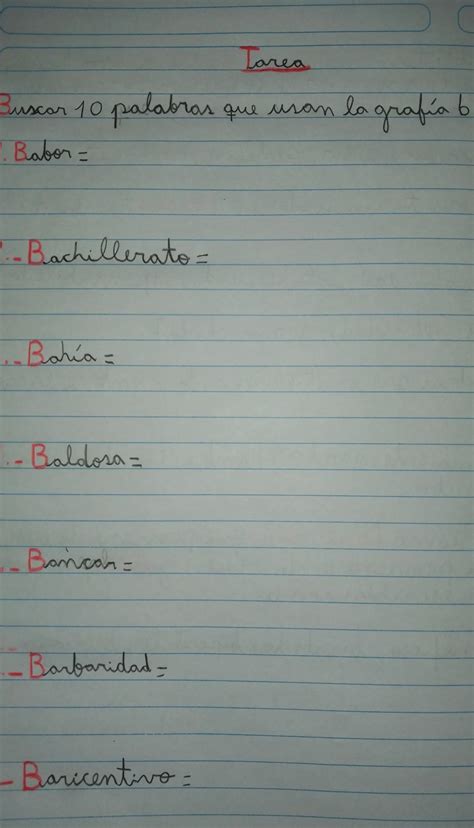 Tarea
Buscar 10 palabras que usan la grafía b
. Babor =
.- Bachillerato =
.- Bahía =
.- Baldosa =
.- Bancar =
.- Barbaridad =
- Baricentivo =